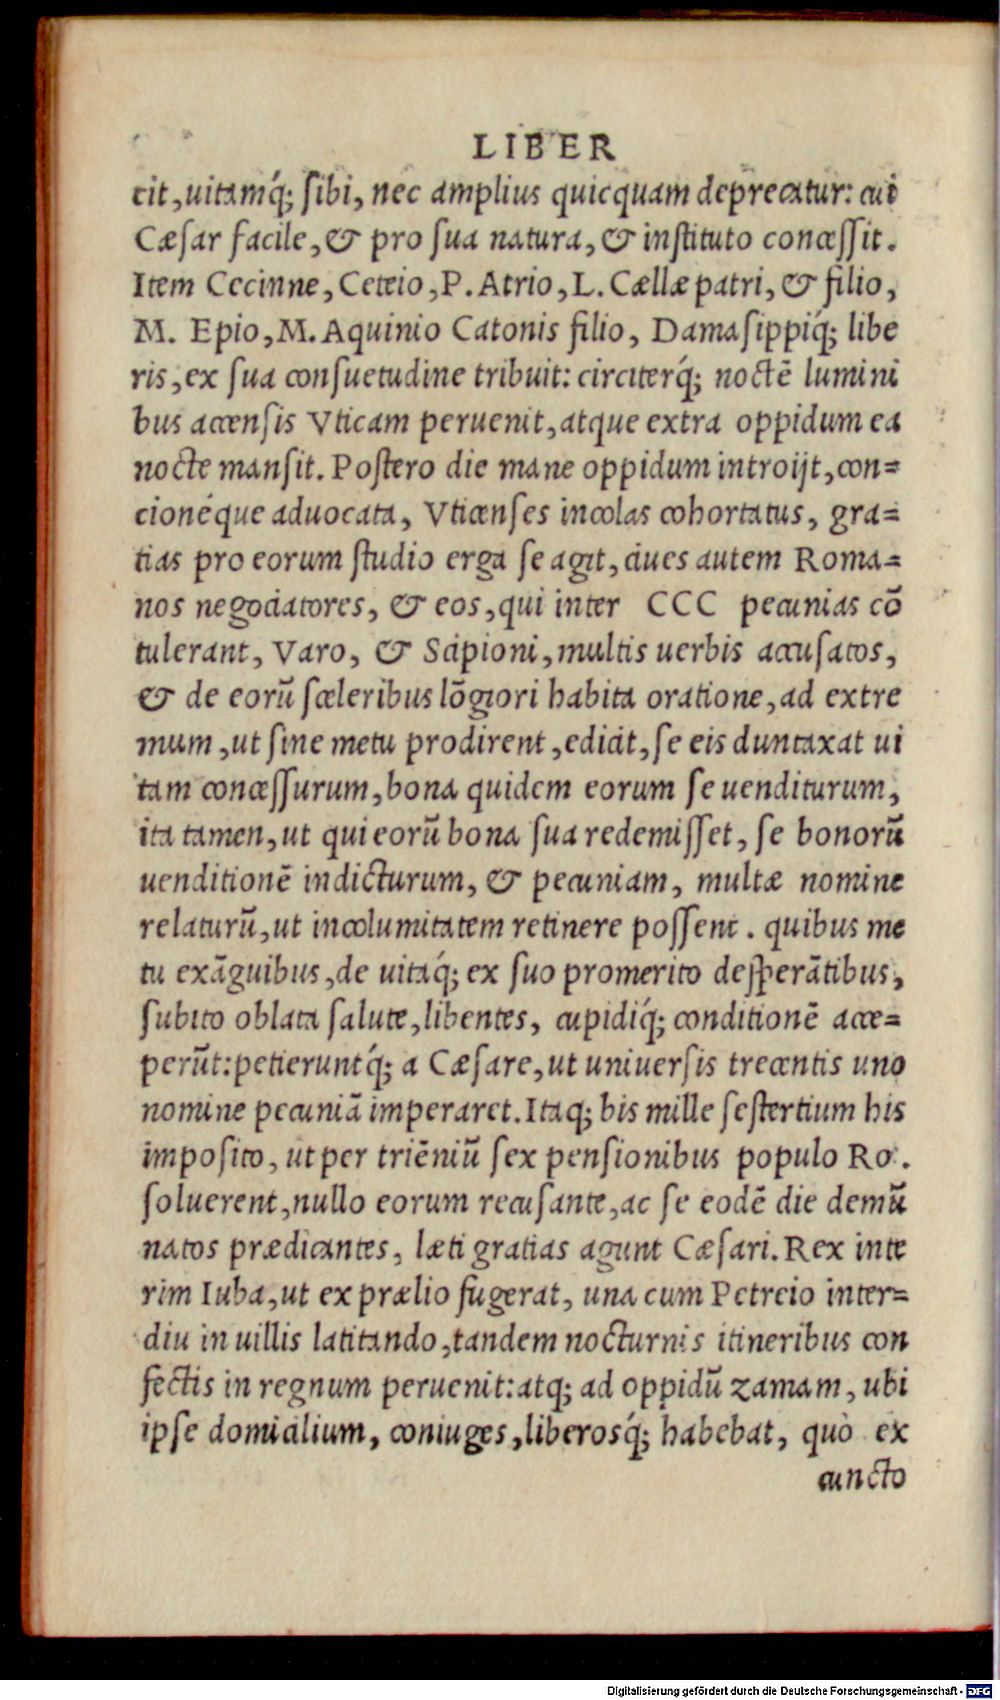 LIBER
cit, uitamq́; sibi, nec amplius quicquam deprecatur: cui
Cæsar facile, & pro sua natura, & instituto concessit.
Item Cecinne, Ceteio, P. Atrio, L. Cællæ patri, & filio,
M. Epio, M. Aquinio Catonis filio, Damasippiq́; libe
ris, ex sua consuetudine tribuit: circiterq́; noctē lumini
bus accensis Vticam peruenit, atque extra oppidum ea
nocte mansit. Postero die mane oppidum introijt, con=
cionéque aduocata, Vticenses incolas cohortatus, gra=
tias pro eorum studio erga se agit, ciues autem Roma=
nos negociatores, & eos, qui inter CCC pecunias cō
tulerant, Varo, & Scipioni, multis uerbis accusatos,
& de eorū sceleribus lōgiori habita oratione, ad extre
mum, ut sine metu prodirent, edicit, se eis duntaxat ui
tam concessurum, bona quidem eorum se uenditurum,
ita tamen, ut qui eorū bona sua redemisset, se bonorū
uenditionē indicturum, & pecuniam, multæ nomine
relaturū, ut incolumitatem retinere possent. quibus me
tu exāguibus, de uitaq́; ex suo promerito desperātibus,
subito oblata salute, libentes, cupidiq́; conditionē acce=
perūt: petieruntq́; a Cæsare, ut uniuersis trecentis uno
nomine pecuniā imperaret. Itaq; bis mille sestertium his
imposito, ut per triēniū sex pensionibus populo Ro.
soluerent, nullo eorum recusante, ac se eodē die demū
natos prædicantes, læti gratias agunt Cæsari. Rex inte
rim Iuba, ut ex prælio fugerat, una cum Petreio inter=
diu in uillis latitando, tandem nocturnis itineribus con
fectis in regnum peruenit: atq; ad oppidū zamam, ubi
ipse domicilium, coniuges, liberosq́; habebat, quò ex
cuncto
Digitalisierung gefördert durch die Deutsche Forschungsgemeinschaft - DFG